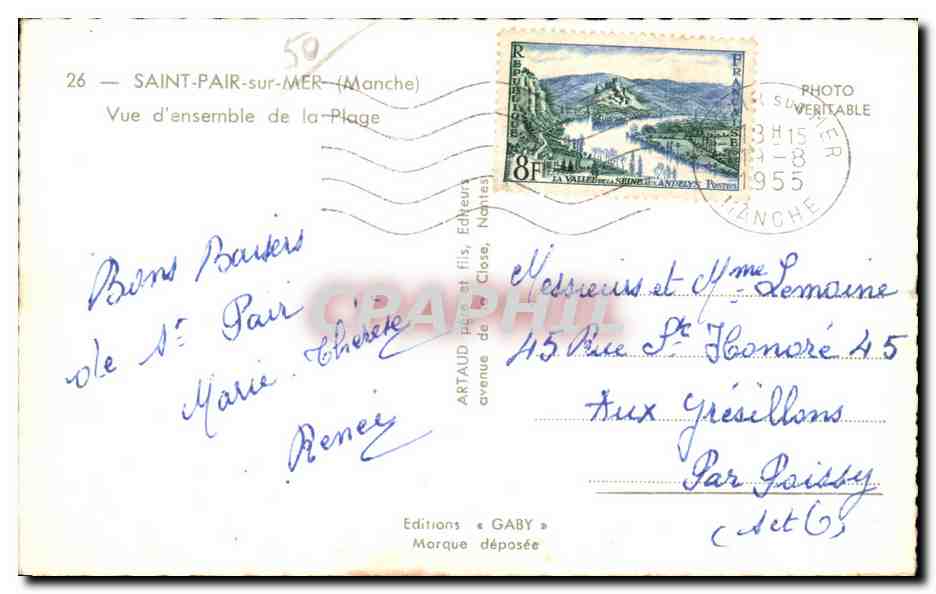 50
26 — SAINT-PAIR-sur-MER (Manche)
Vue d'ensemble de la Plage
REPUBLIQUE
FRANÇAISE
8F
LA VALLEE DE LA SEINE AUX ANDELYS POSTES
PHOTO
VERITABLE
SUR MER
18H15
9-8
1955
MANCHE
Bons Baisers
de St Pair
Marie-Thérèse
Renée
ARTAUD père et fils, Editeurs
avenue de la Close, Nantes
CPAPHIL
Messieurs et Mme Lemoine
45 Rue St Honoré 45
Aux Grésillons
Par Poissy
(S et O)
Editions « GABY »
Marque déposée